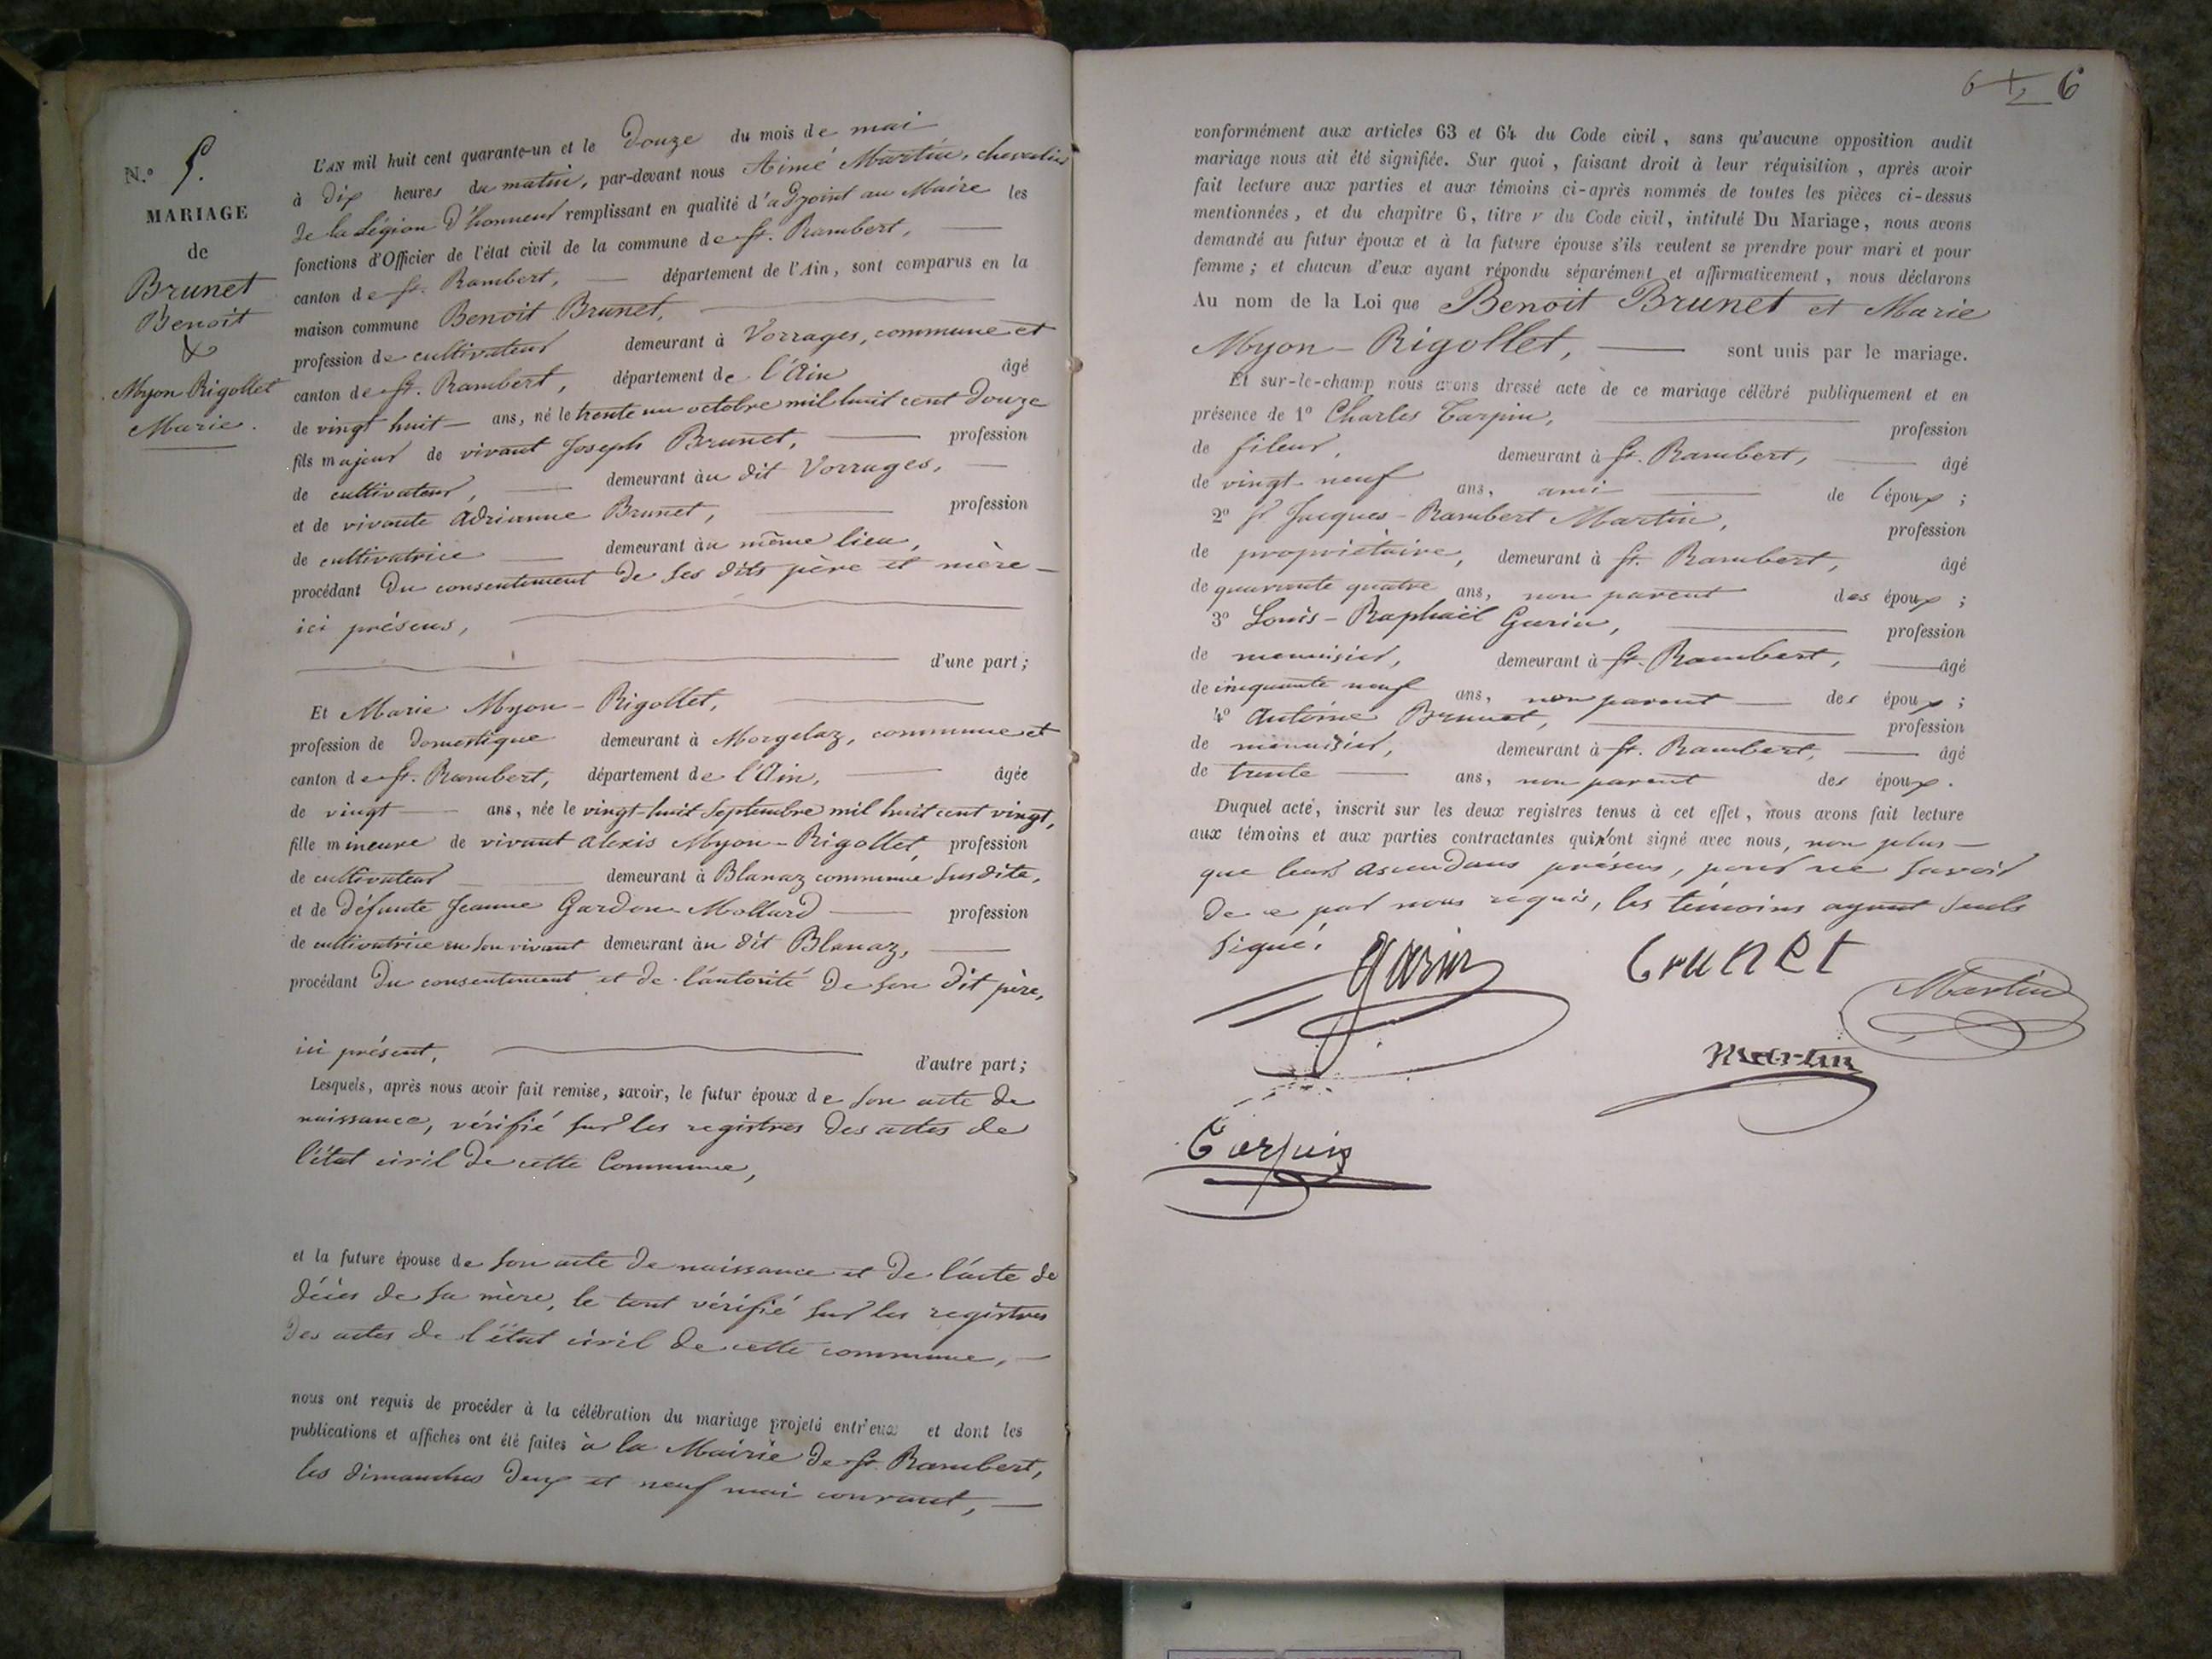 N.º 5.
MARIAGE
de
Brunet
Benoit
&
Myon Rigollet
Marie.
L'AN mil huit cent quarante-un et le Douze du mois de mai
à Dix heures du matin, par-devant nous Aimé Martin, chevalier
de la Légion d'honneur remplissant en qualité d'adjoint au Maire les
fonctions d'Officier de l'état civil de la commune de St. Rambert,
canton de St. Rambert, département de l'Ain, sont comparus en la
maison commune Benoit Brunet,
profession de cultivateur demeurant à Vorrages, commune et
canton de St. Rambert, département de l'Ain âgé
de vingt huit ans, né le trente un octobre mil huit cent douze
fils majeur de vivant Joseph Brunet, profession
de cultivateur, demeurant àu dit Vorrages,
et de vivante Adrianne Brunet, profession
de cultivatrice demeurant àu même lieu,
procédant Du consentement de ses dits père et mère
ici présens,
d'une part;
Et Marie Myon-Rigollet,
profession de Domestique demeurant à Morgelaz, commune et
canton de St. Rambert, département de l'Ain, âgée
de vingt ans, née le vingt-huit Septembre mil huit cent vingt,
fille mineure de vivant Alexis Myon-Rigollet, profession
de cultivateur demeurant à Blanaz commune susdite,
et de défunte Jeanne Gardon-Mollard profession
de cultivatrice en son vivant demeurant àu dit Blanaz,
procédant Du consentement et de l'autorité de son dit père,
ici présent, d'autre part;
Lesquels, après nous avoir fait remise, savoir, le futur époux de son acte de
naissance, vérifié sur les registres des actes de
l'état civil de cette Commune,
et la future épouse de son acte de naissance et de l'acte de
décès de sa mère, le tout vérifié sur les registres
des actes de l'état civil de cette commune,
nous ont requis de procéder à la célébration du mariage projeté entr'eux et dont les
publications et affiches ont été faites à la Mairie de St. Rambert,
les dimanches deux et neuf mai courant,
6 6
conformément aux articles 63 et 64 du Code civil, sans qu'aucune opposition audit
mariage nous ait été signifiée. Sur quoi, faisant droit à leur réquisition, après avoir
fait lecture aux parties et aux témoins ci-après nommés de toutes les pièces ci-dessus
mentionnées, et du chapitre 6, titre v du Code civil, intitulé Du Mariage, nous avons
demandé au futur époux et à la future épouse s'ils veulent se prendre pour mari et pour
femme; et chacun d'eux ayant répondu séparément et affirmativement, nous déclarons
Au nom de la Loi que Benoit Brunet et Marie
Myon-Rigollet, sont unis par le mariage.
Et sur-le-champ nous avons dressé acte de ce mariage célébré publiquement et en
présence de 1º Charles Tarpin, profession
de fileur, demeurant à St. Rambert, âgé
de vingt-neuf ans, ami de l'époux;
2º Sr Jacques-Rambert Martin, profession
de propriétaire, demeurant à St. Rambert, âgé
de quarante quatre ans, non parent des époux;
3º Louis-Raphaël Garin, profession
de menuisier, demeurant à St. Rambert, âgé
de cinquante neuf ans, non parent des époux;
4º Antoine Brunet, profession
de menuisier, demeurant à St. Rambert, âgé
de trente ans, non parent des époux.
Duquel acte, inscrit sur les deux registres tenus à cet effet, nous avons fait lecture
aux témoins et aux parties contractantes qui n'ont signé avec nous, non plus
que leurs ascendans présens, pour ne savoir
de ce par nous requis, les témoins ayant seuls
signé.
Garin Brunet Martin
Martin
Tarpin